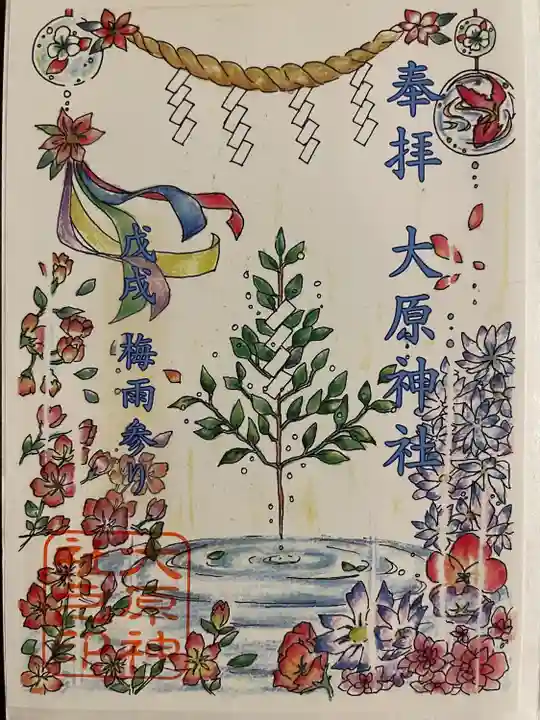 奉拝 大原神社
戊戌 梅雨参り
大原神
社宮印